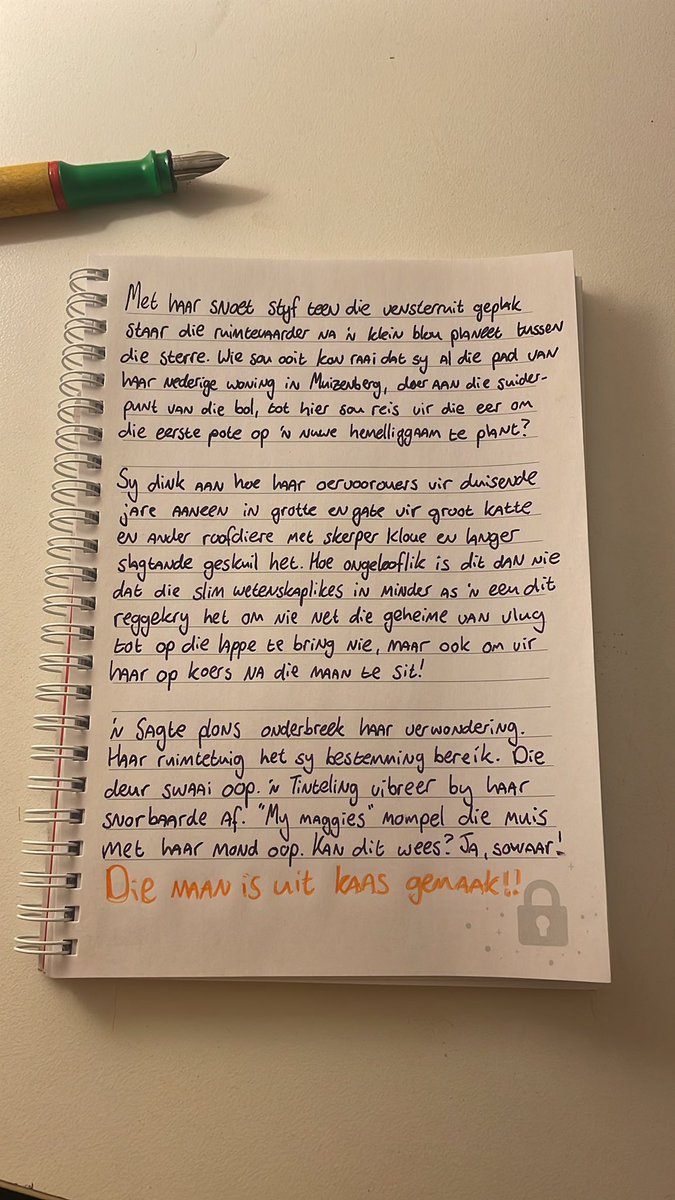 Met haar snoet styf teen die vensterruit geplak
staar die ruimtevaarder na 'n klein blou planeet tussen
die sterre. Wie sou ooit kon raai dat sy al die pad van
haar nederige woning in Muizenberg, daar aan die suider-
punt van die bol, tot hier sou reis vir die eer om
die eerste pote op 'n nuwe hemelliggaam te plant?
Sy dink aan hoe haar oervoorouers vir duisende
jare aaneen in grotte en gate vir groot katte
en ander roofdiere met skerper kloue en langer
slagtande geskuil het. Hoe ongelooflik is dit dan nie
dat die slim wetenskaplikes in minder as 'n eeu dit
reggekry het om nie net die geheime van vlug
tot op die lappe te bring nie, maar ook om vir
haar op koers na die maan te sit!
'n Sagte plons onderbreek haar verwondering.
Haar ruimtetuig het sy bestemming bereik. Die
deur swaai oop. 'n Tinteling vibreer by haar
snorbaarde af. "My maggies" mompel die muis
met haar mond oop. Kan dit wees? Ja, sowaar!
Die maan is uit kaas gemaak!!